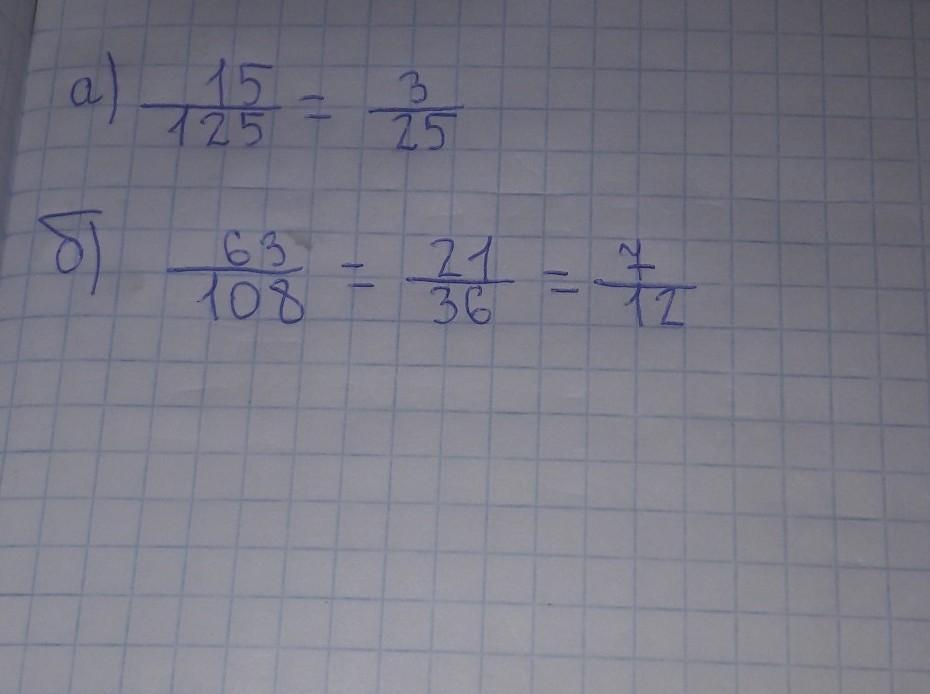 а) 15/125 = 3/25
б) 63/108 = 21/36 = 7/12